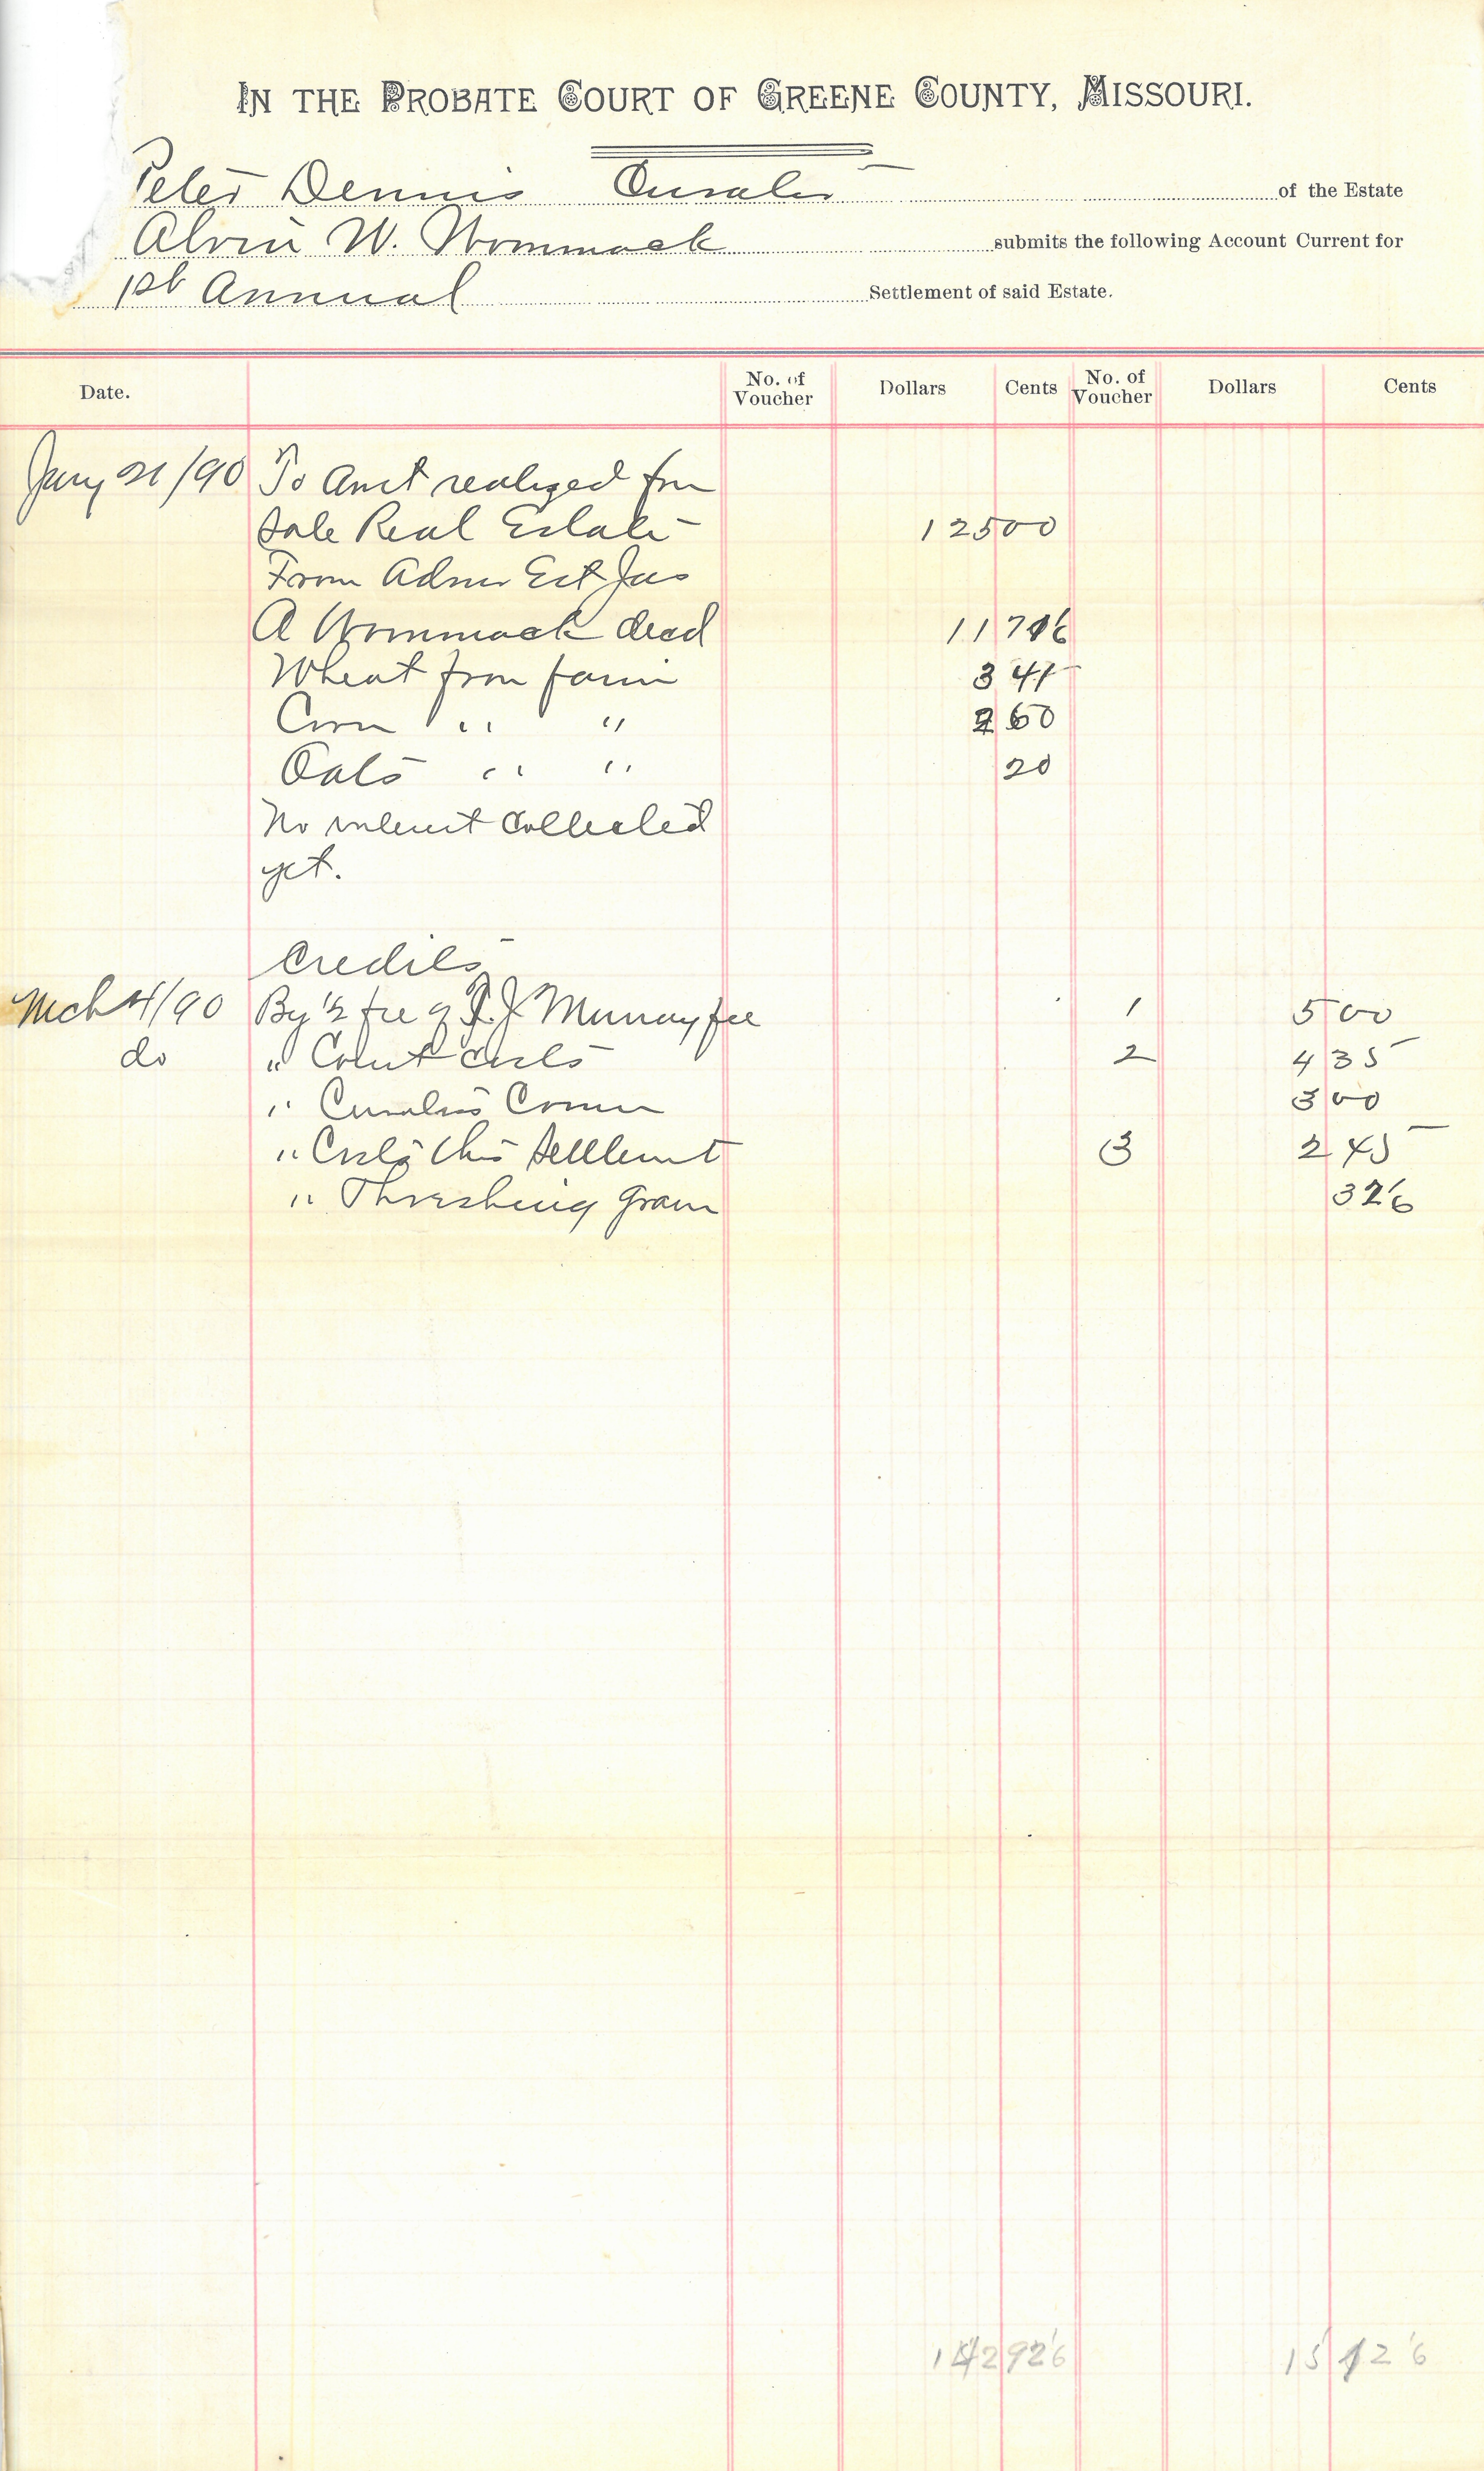 IN THE PROBATE COURT OF GREENE COUNTY, MISSOURI.
Peter Dennis Curator of the Estate
Alvin W. Wommack submits the following Account Current for
1st Annual Settlement of said Estate.
Date. No. of Voucher Dollars Cents No. of Voucher Dollars Cents
Jany 21/90 To Amt realized for
Sale Real Estate 125 00
From Admr Est Jas
A Wommack decd 11
Wheat from farm 3 41
Corn " " 2 60
Oats " " 20
No interest collected
yet.
Credits
Mch 4/90 By ½ fee of J. J Murray fee 1 5 00
do " Court costs 2 4 35
" Curators Comm 3 00
" Costs this Settlemt 3 2 45
" Threshing Grain 32 6
142 92 6 15 12 6